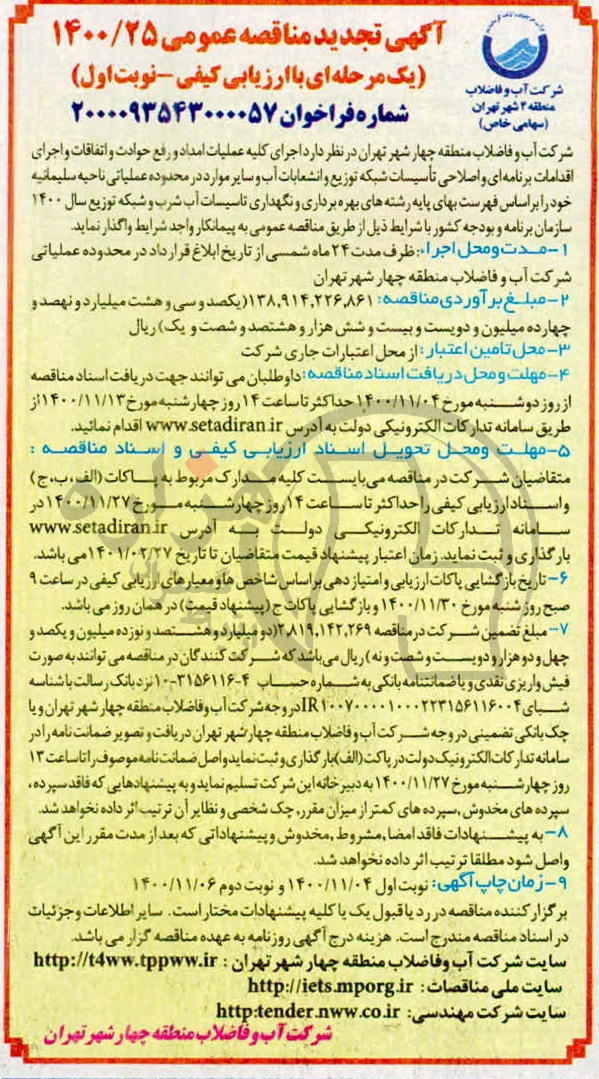 آگهی تجدید مناقصه عمومی ۱۴۰۰/۲۵
(یک مرحله‌ای با ارزیابی کیفی - نوبت اول)
شماره فراخوان ۲۰۰۰۰۹۳۵۴۳۰۰۰۰۵۷
شرکت آب و فاضلاب
منطقه ۴ شهر تهران
(سهامی خاص)
شرکت آب و فاضلاب منطقه چهار شهر تهران در نظر دارد اجرای کلیه عملیات امداد و رفع حوادث و اتفاقات و اجرای
اقدامات برنامه‌ای و اصلاحی تأسیسات شبکه توزیع و انشعابات آب و سایر موارد در محدوده عملیاتی ناحیه سلیمانیه
خود را بر اساس فهرست بهای پایه رشته های بهره برداری و نگهداری تاسیسات آب شرب و شبکه توزیع سال ۱۴۰۰
سازمان برنامه و بودجه کشور با شرایط ذیل از طریق مناقصه عمومی به پیمانکار واجد شرایط واگذار نماید.
۱- مدت و محل اجراء: ظرف مدت ۲۴ ماه شمسی از تاریخ ابلاغ قرارداد در محدوده عملیاتی
شرکت آب و فاضلاب منطقه چهار شهر تهران
۲- مبلغ برآوردی مناقصه: ۱۳۸,۹۱۴,۲۲۶,۸۶۱ (یکصد و سی و هشت میلیارد و نهصد و
چهارده میلیون و دویست و بیست و شش هزار و هشتصد و شصت و یک) ریال
۳- محل تامین اعتبار: از محل اعتبارات جاری شرکت
۴- مهلت و محل دریافت اسناد مناقصه: داوطلبان می توانند جهت دریافت اسناد مناقصه
از روز دوشنبه مورخ ۱۴۰۰/۱۱/۰۴ حداکثر تا ساعت ۱۴ روز چهارشنبه مورخ ۱۴۰۰/۱۱/۱۳ از
طریق سامانه تدارکات الکترونیکی دولت به آدرس www.setadiran.ir اقدام نمائید.
۵- مهلت ومحل تحویل اسناد ارزیابی کیفی و اسناد مناقصه :
متقاضیان شرکت در مناقصه می‌بایست کلیه مدارک مربوط به پاکات (الف، ب، ج)
و اسناد ارزیابی کیفی را حداکثر تا ساعت ۱۴ روز چهارشنبه مورخ ۱۴۰۰/۱۱/۲۷ در
سامانه تدارکات الکترونیکی دولت به آدرس www.setadiran.ir
بارگذاری و ثبت نماید. زمان اعتبار پیشنهاد قیمت متقاضیان تا تاریخ ۱۴۰۱/۰۲/۲۷ می باشد.
۶- تاریخ بازگشایی پاکات ارزیابی و امتیازدهی بر اساس شاخص ها و معیارهای ارزیابی کیفی در ساعت ۹
صبح روز شنبه مورخ ۱۴۰۰/۱۱/۳۰ و بازگشایی پاکات ج (پیشنهاد قیمت) در همان روز می باشد.
۷- مبلغ تضمین شرکت در مناقصه ۲,۸۱۹,۱۴۲,۲۶۹ (دو میلیارد و هشتصد و نوزده میلیون و یکصد و
چهل و دو هزار و دویست و شصت و نه) ریال می‌باشد که شرکت کنندگان در مناقصه می توانند به صورت
فیش واریزی نقدی و یا ضمانتنامه بانکی به شماره حساب ۴-۳۱۵۶۱۱۶-۱۰ نزد بانک رسالت با شناسه
شبای IR۱۰۰۷۰۰۰۰۱۰۰۰۲۲۳۱۵۶۱۱۶۰۰۴ در وجه شرکت آب و فاضلاب منطقه چهار شهر تهران و یا
چک بانکی تضمینی در وجه شرکت آب و فاضلاب منطقه چهار شهر تهران دریافت و تصویر ضمانت نامه را در
سامانه تدارکات الکترونیک دولت در پاکت (الف) بارگذاری و ثبت نماید واصل ضمانت نامه موصوف را تا ساعت ۱۳
روز چهارشنبه مورخ ۱۴۰۰/۱۱/۲۷ به دبیرخانه این شرکت تسلیم نماید و به پیشنهادهایی که فاقد سپرده،
سپرده های مخدوش، سپرده های کمتر از میزان مقرر، چک شخصی و نظایر آن ترتیب اثر داده نخواهد شد.
۸- به پیشنهادات فاقد امضا، مشروط، مخدوش و پیشنهاداتی که بعد از مدت مقرر این آگهی
واصل شود مطلقا ترتیب اثر داده نخواهد شد.
۹- زمان چاپ آگهی: نوبت اول ۱۴۰۰/۱۱/۰۴ و نوبت دوم ۱۴۰۰/۱۱/۰۶
برگزار کننده مناقصه در رد یا قبول یک یا کلیه پیشنهادات مختار است. سایر اطلاعات و جزئیات
در اسناد مناقصه مندرج است. هزینه درج آگهی روزنامه به عهده مناقصه گزار می باشد.
سایت شرکت آب وفاضلاب منطقه چهار شهر تهران : http://t4ww.tppww.ir
سایت ملی مناقصات: http://iets.mporg.ir
سایت شرکت مهندسی: http:tender.nww.co.ir
شرکت آب و فاضلاب منطقه چهار شهر تهران